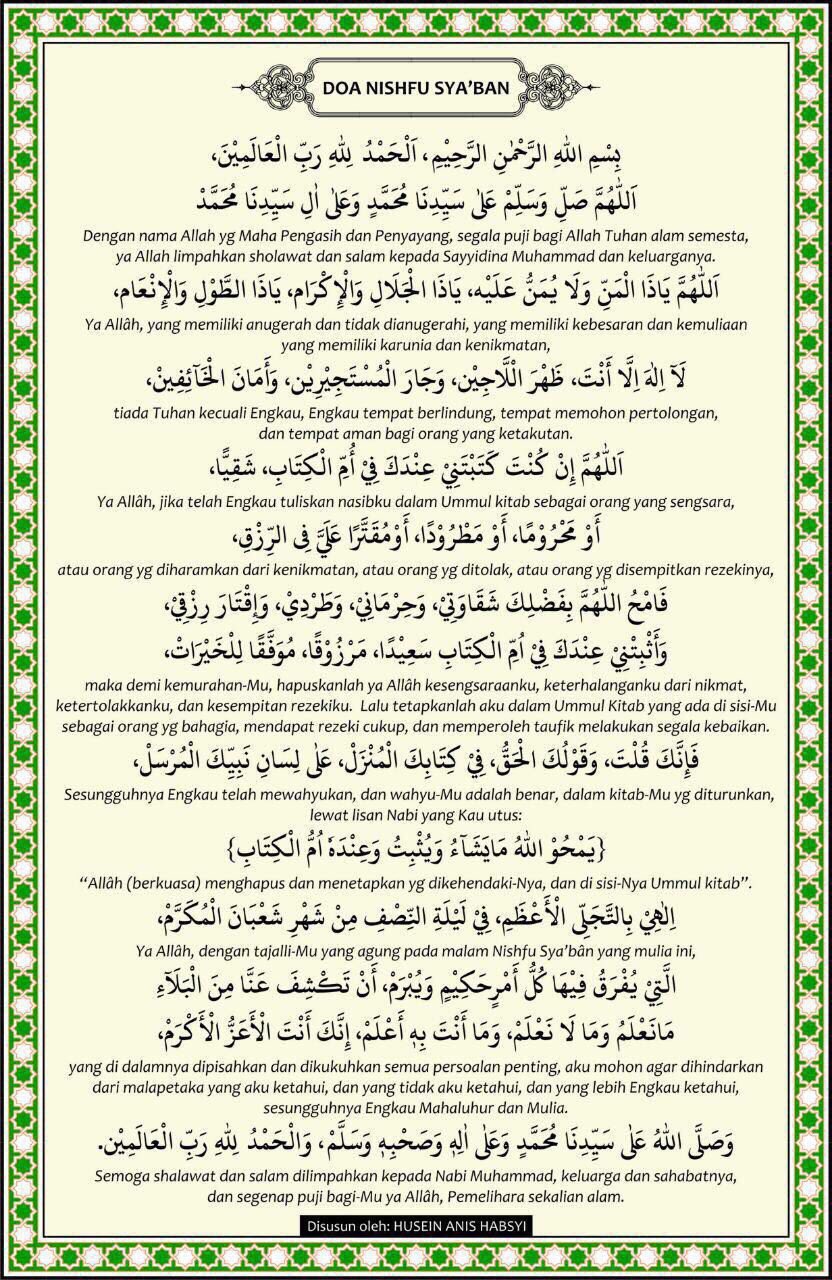 DOA NISHFU SYA'BAN
بِسْمِ اللهِ الرَّحْمٰنِ الرَّحِيْمِ، اَلْحَمْدُ لِلّٰهِ رَبِّ الْعَالَمِيْنَ،
اَللّٰهُمَّ صَلِّ وَسَلِّمْ عَلٰى سَيِّدِنَا مُحَمَّدٍ وَعَلٰى اٰلِ سَيِّدِنَا مُحَمَّدْ
Dengan nama Allah yg Maha Pengasih dan Penyayang, segala puji bagi Allah Tuhan alam semesta,
ya Allah limpahkan sholawat dan salam kepada Sayyidina Muhammad dan keluarganya.
اَللّٰهُمَّ يَاذَا الْمَنِّ وَلَا يُمَنُّ عَلَيْه، يَاذَا الْجَلَالِ وَالْإِكْرَام، يَاذَا الطَّوْلِ وَالْإِنْعَام،
Ya Allâh, yang memiliki anugerah dan tidak dianugerahi, yang memiliki kebesaran dan kemuliaan
yang memiliki karunia dan kenikmatan,
لَآ اِلٰهَ اِلَّا أَنْتَ، ظَهْرَ اللَّاجِيْن، وَجَارَ الْمُسْتَجِيْرِيْن، وَأَمَانَ الْخَآئِفِيْنْ،
tiada Tuhan kecuali Engkau, Engkau tempat berlindung, tempat memohon pertolongan,
dan tempat aman bagi orang yang ketakutan.
اَللّٰهُمَّ إِنْ كُنْتَ كَتَبْتَنِيْ عِنْدَكَ فِيْ أُمِّ الْكِتَابِ، شَقِيًّا،
Ya Allâh, jika telah Engkau tuliskan nasibku dalam Ummul kitab sebagai orang yang sengsara,
أَوْ مَحْرُوْمًا، أَوْ مَطْرُوْدًا، أَوْمُقَتَّرًا عَلَيَّ فِى الرِّزْقِ،
atau orang yg diharamkan dari kenikmatan, atau orang yg ditolak, atau orang yg disempitkan rezekinya,
فَامْحُ اللّٰهُمَّ بِفَضْلِكَ شَقَاوَتِيْ، وَحِرْمَانِيْ، وَطَرْدِيْ، وَإِقْتَارَ رِزْقِيْ،
وَأَثْبِتْنِيْ عِنْدَكَ فِيْ اُمِّ الْكِتَابِ سَعِيْدًا، مَرْزُوْقًا، مُوَفَّقًا لِلْخَيْرَاتْ،
maka demi kemurahan-Mu, hapuskanlah ya Allâh kesengsaraanku, keterhalanganku dari nikmat,
ketertolakkanku, dan kesempitan rezekiku. Lalu tetapkanlah aku dalam Ummul Kitab yang ada di sisi-Mu
sebagai orang yg bahagia, mendapat rezeki cukup, dan memperoleh taufik melakukan segala kebaikan.
فَإِنَّكَ قُلْتَ، وَقَوْلُكَ الْحَقُّ، فِيْ كِتَابِكَ الْمُنْزَلْ، عَلٰى لِسَانِ نَبِيِّكَ الْمُرْسَلْ،
Sesungguhnya Engkau telah mewahyukan, dan wahyu-Mu adalah benar, dalam kitab-Mu yg diturunkan,
lewat lisan Nabi yang Kau utus:
{يَمْحُوْ اللهُ مَايَشَآءُ وَيُثْبِتُ وَعِنْدَهٗ اُمُّ الْكِتَابِ}
“Allâh (berkuasa) menghapus dan menetapkan yg dikehendaki-Nya, dan di sisi-Nya Ummul kitab”.
اِلٰهِيْ بِالتَّجَلِّى الْأَعْظَمِ، فِيْ لَيْلَةِ النِّصْفِ مِنْ شَهْرِ شَعْبَانَ الْمُكَرَّمْ،
Ya Allâh, dengan tajalli-Mu yang agung pada malam Nishfu Sya'bân yang mulia ini,
الَّتِيْ يُفْرَقُ فِيْهَا كُلُّ أَمْرٍحَكِيْمٍ وَيُبْرَمْ، أَنْ تَكْشِفَ عَنَّا مِنَ الْبَلَآءِ
مَانَعْلَمُ وَمَا لَا نَعْلَمْ، وَمَا أَنْتَ بِهٖ أَعْلَمْ، إِنَّكَ أَنْتَ الْأَعَزُّ الْأَكْرَمْ،
yang di dalamnya dipisahkan dan dikukuhkan semua persoalan penting, aku mohon agar dihindarkan
dari malapetaka yang aku ketahui, dan yang tidak aku ketahui, dan yang lebih Engkau ketahui,
sesungguhnya Engkau Mahaluhur dan Mulia.
وَصَلَّى اللهُ عَلٰى سَيِّدِنَا مُحَمَّدٍ وَعَلٰى اٰلِهٖ وَصَحْبِهٖ وَسَلَّمْ، وَالْحَمْدُ لِلّٰهِ رَبِّ الْعَالَمِيْن.
Semoga shalawat dan salam dilimpahkan kepada Nabi Muhammad, keluarga dan sahabatnya,
dan segenap puji bagi-Mu ya Allâh, Pemelihara sekalian alam.
Disusun oleh: HUSEIN ANIS HABSYI